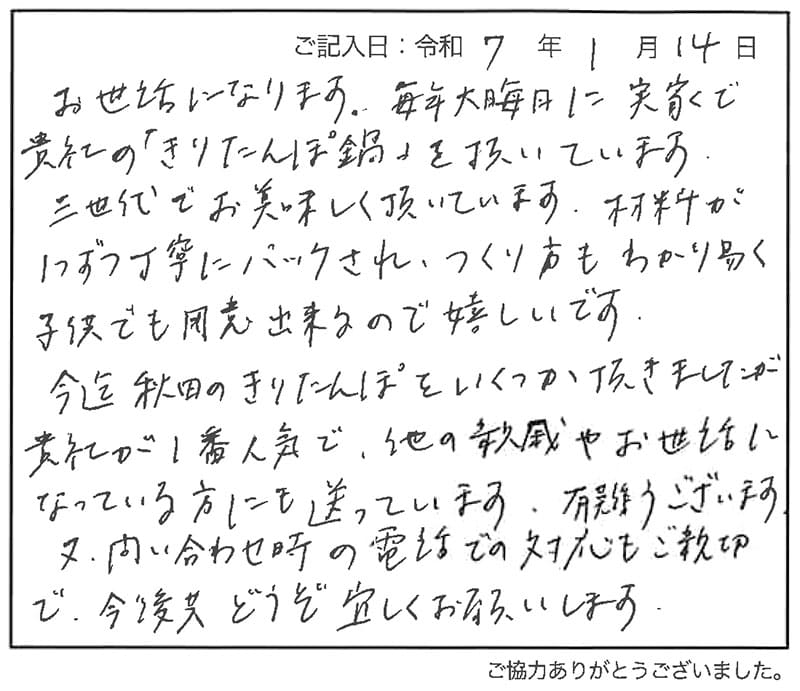 ご記入日：令和 7 年 1 月 14 日
お世話になります。毎年大晦日に実家で
貴社の「きりたんぽ鍋」を頂いています.
三世代でお美味しく頂いています. 材料が
1つずつ丁寧にパックされ、つくり方もわかり易く
子供でも用意出来るので嬉しいです.
今迄秋田のきりたんぽをいくつか頂きましたが
貴社が1番人気で、他の親戚やお世話に
なっている方にも送っています. 有難うございます.
又、問い合わせ時の電話での対応もご親切
で、今後共どうぞ宜しくお願いします.
ご協力ありがとうございました。